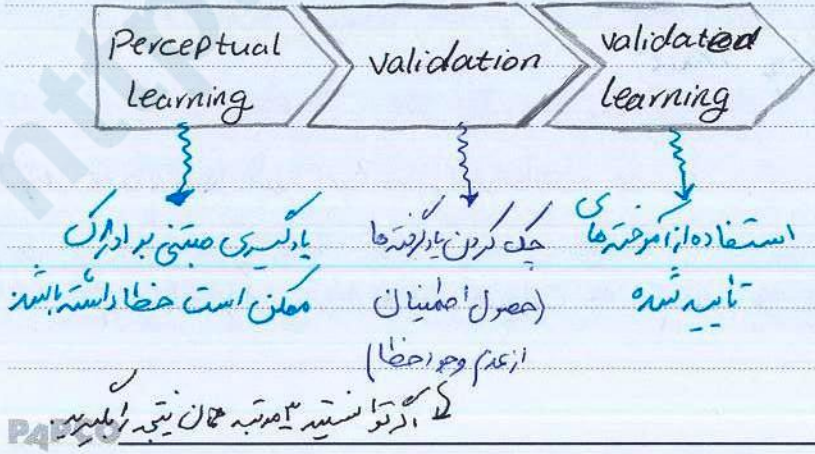 Perceptual
Learning
validation
validated
Learning
یادگیری مبتنی بر ادراک
ممکن است خطا داشته باشند
چک کردن یادگرفته‌ها
(حصول اطمینان
از عدم وجود خطا)
استفاده از آموخته‌های
تایید شده
اگر توانستید ۳ مرتبه همان نتیجه را بگیرید.
PAPCO